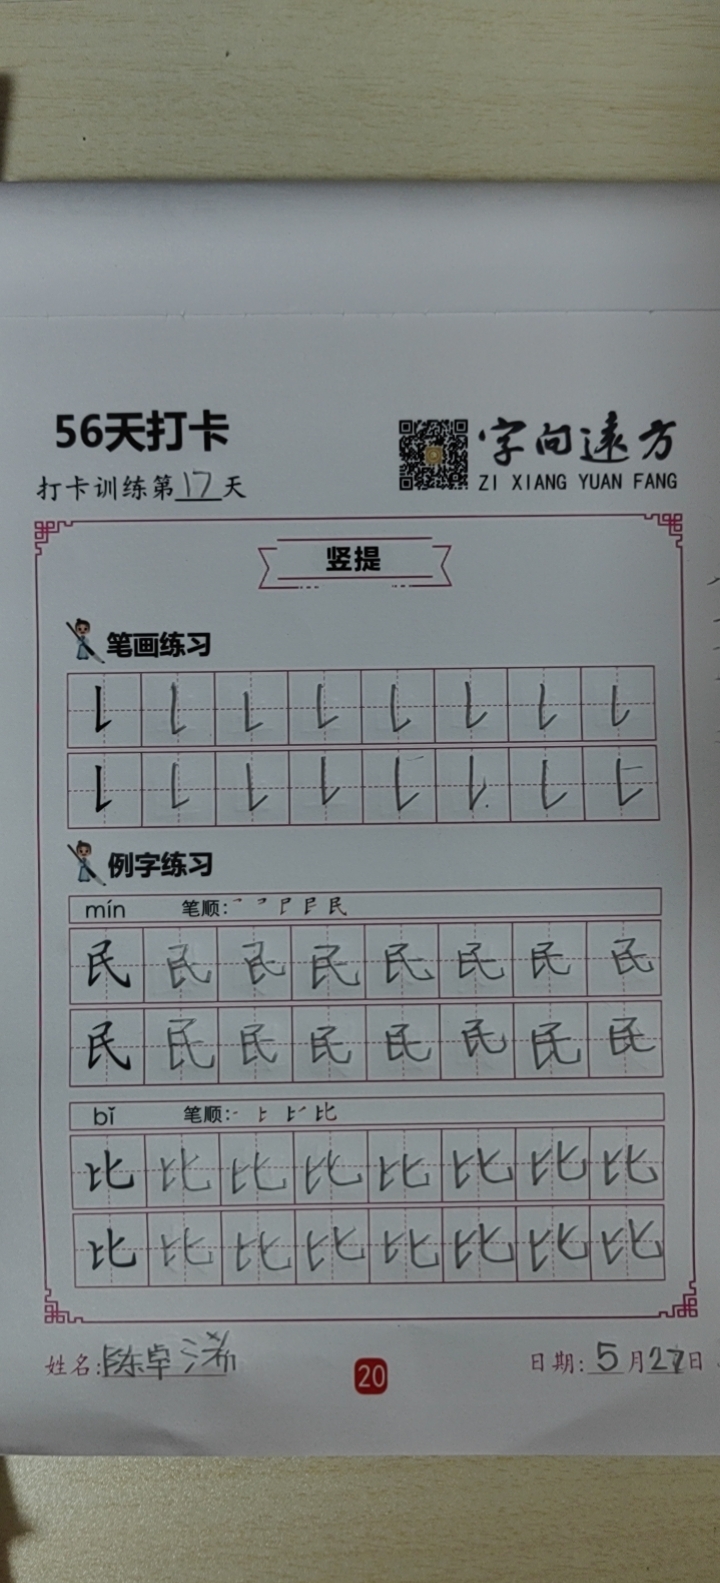 56天打卡
字向远方
打卡训练第17天
ZI XIANG YUAN FANG
竖提
笔画练习
例字练习
mín 笔顺:
民 民 民 民 民 民 民 民
民 民 民 民 民 民 民 民
bǐ 笔顺: 比
比 比 比 比 比 比 比 比
比 比 比 比 比 比 比 比
姓名:陈卓浠
20
日期:5月27日